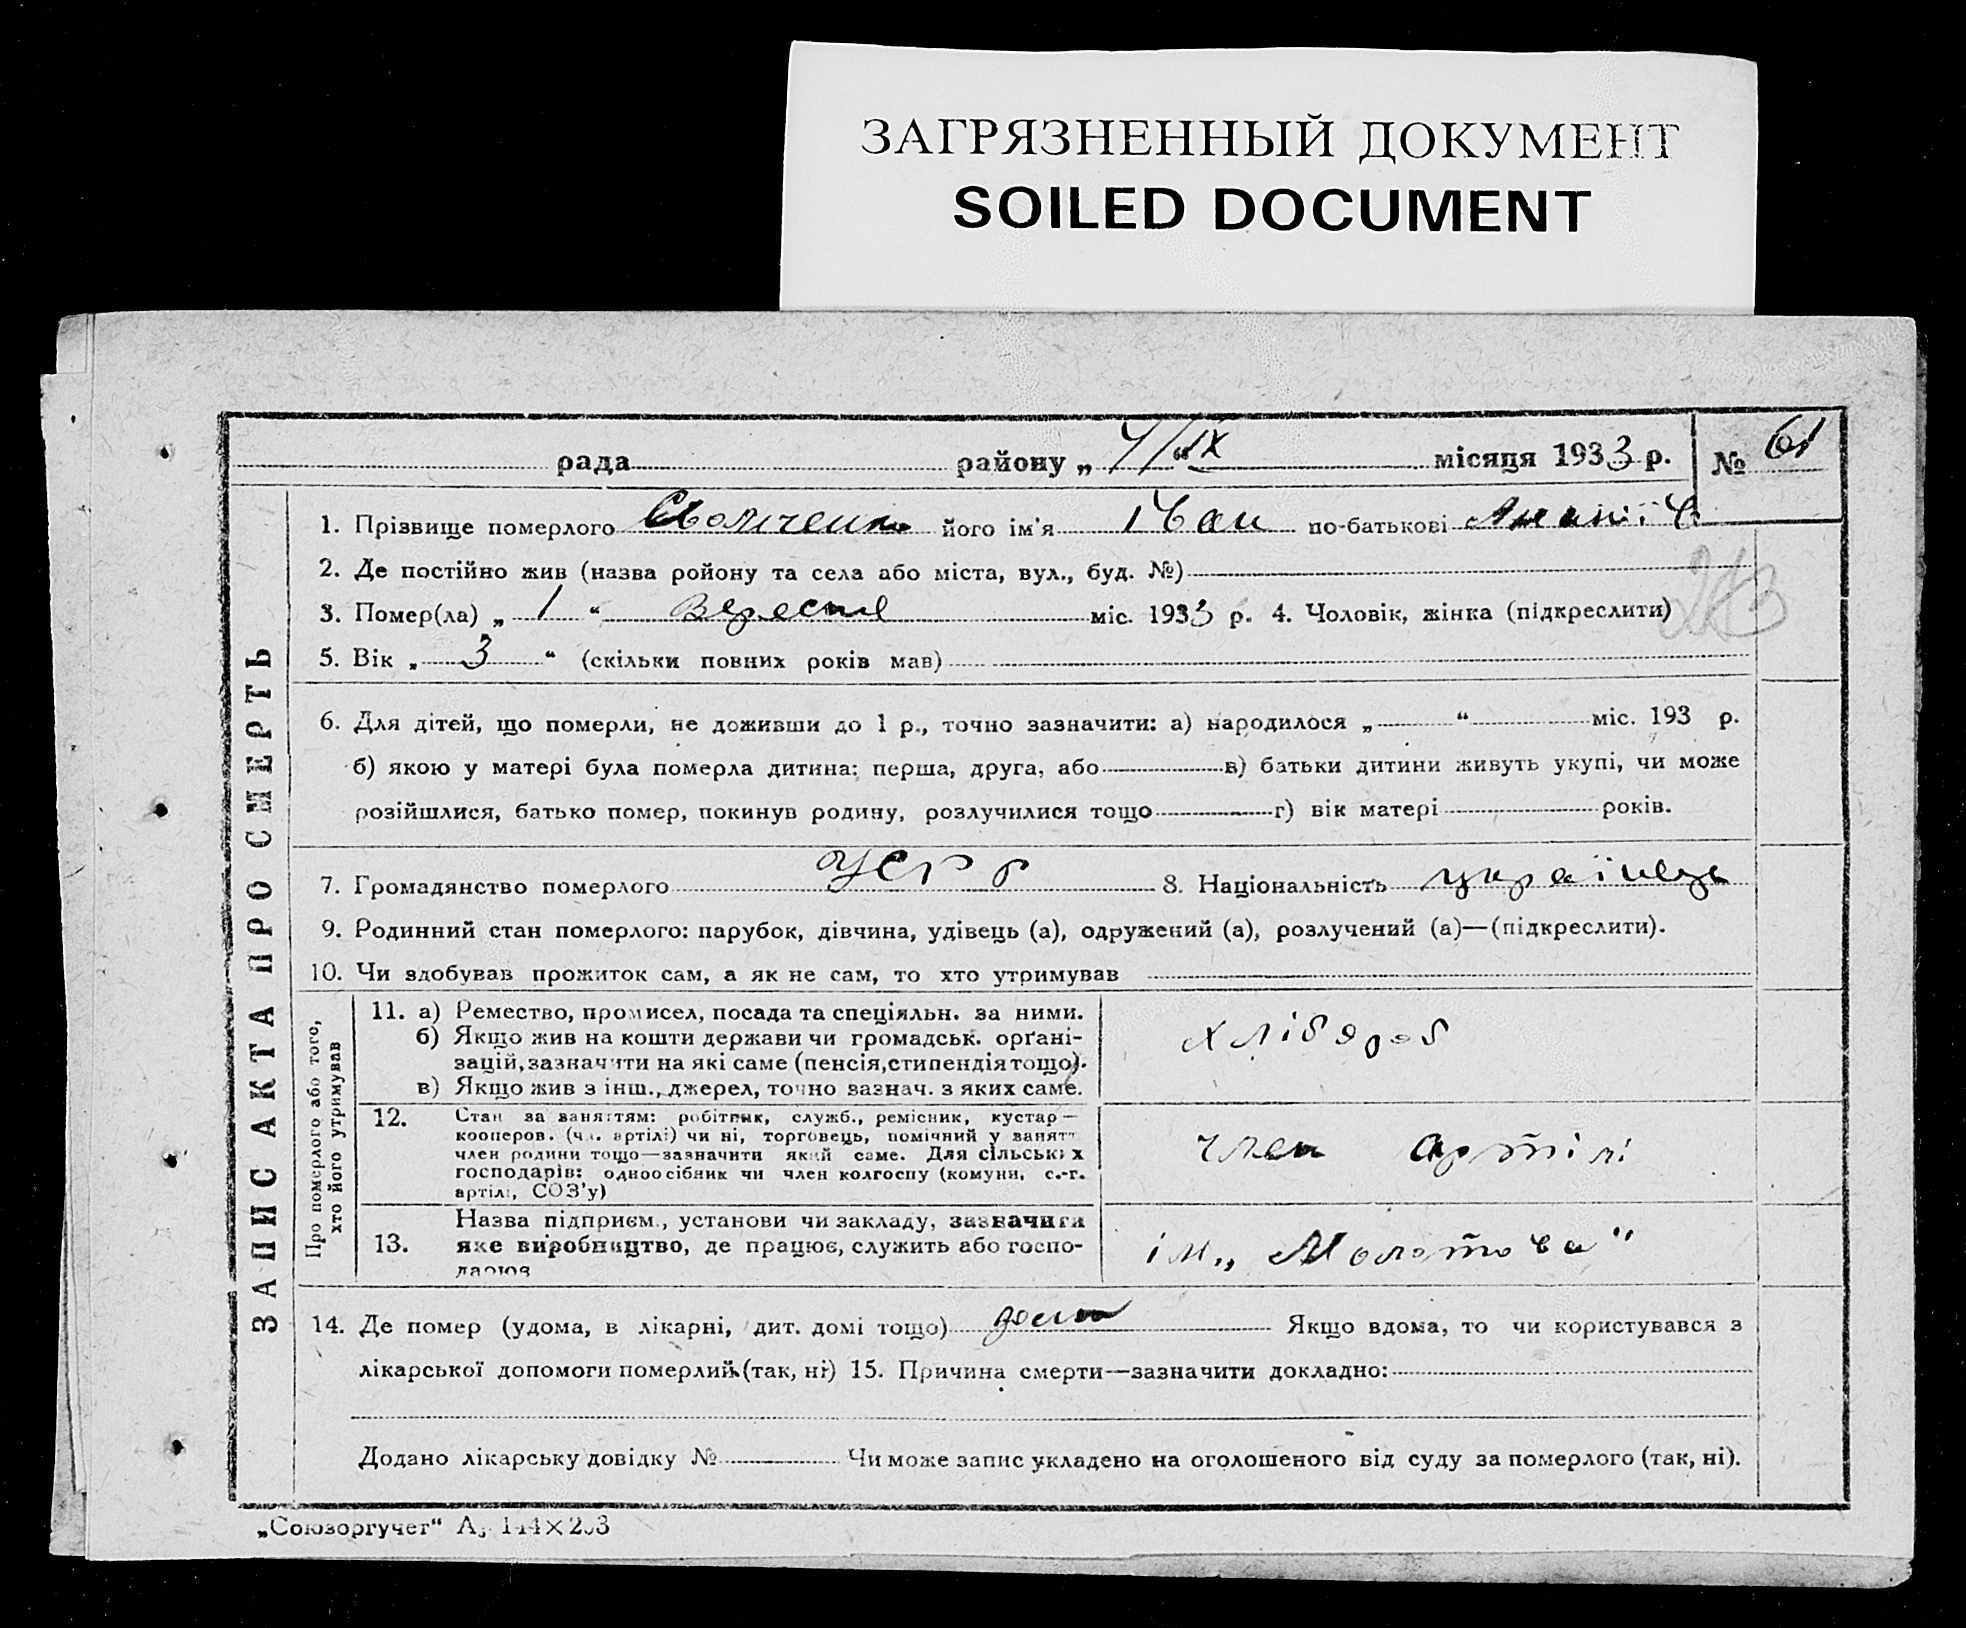 ЗАГРЯЗНЕННЫЙ ДОКУМЕНТ
SOILED DOCUMENT
рада району „ /IX “ місяця 1933 р. № 61
ЗАПИСАКТА ПРО СМЕРТЬ
1. Прізвище померлого його ім'я Іван по-батькові
2. Де постійно жив (назва ройону та села або міста, вул., буд. №)
3. Помер(ла) „ 1 “ Вересня міс. 1933 р. 4. Чоловік, жінка (підкреслити)
5. Вік „ 3 “ (скільки повних років мав)
6. Для дітей, що померли, не доживши до 1 р., точно зазначити: а) народилося „ “ міс. 193 р.
б) якою у матері була померла дитина: перша, друга, або в) батьки дитини живуть укупі, чи може
розійшлися, батько помер, покинув родину, розлучилися тощо г) вік матері років.
7. Громадянство померлого УСРР 8. Національність українець
9. Родинний стан померлого: парубок, дівчина, удівець (а), одружений (а), розлучений (а)—(підкреслити).
10. Чи здобував прожиток сам, а як не сам, то хто утримував
Про померлого або того,
хто його утримував
11. а) Ремество, промисел, посада та спеціяльн. за ними.
б) Якщо жив на кошти держави чи громадськ. орґані-
зацій, зазначити на які саме (пенсія, стипендія тощо).
в) Якщо жив з інш., джерел, точно зазнач. з яких саме.
хлібороб
12. Стан за заняттям: робітник, служб., ремісник, кустар—
кооперов. (чл. артілі) чи ні, торговець, помічний у занятт
член родини тощо—зазначити який саме. Для сільських
господарів: одноосібник чи член колгоспу (комуни, с.-г.
артілі, СОЗ'у)
член артілі
13. Назва підприєм., установи чи закладу, зазначити
яке виробництво, де працює, служить або госпо-
дарює
ім. „Молотова“
14. Де помер (удома, в лікарні, дит. домі тощо) дома Якщо вдома, то чи користувався з
лікарської допомоги померлий (так, ні) 15. Причина смерти—зазначити докладно:
Додано лікарську довідку № Чи може запис укладено на оголошеного від суду за померлого (так, ні).
„Союзоргучет“